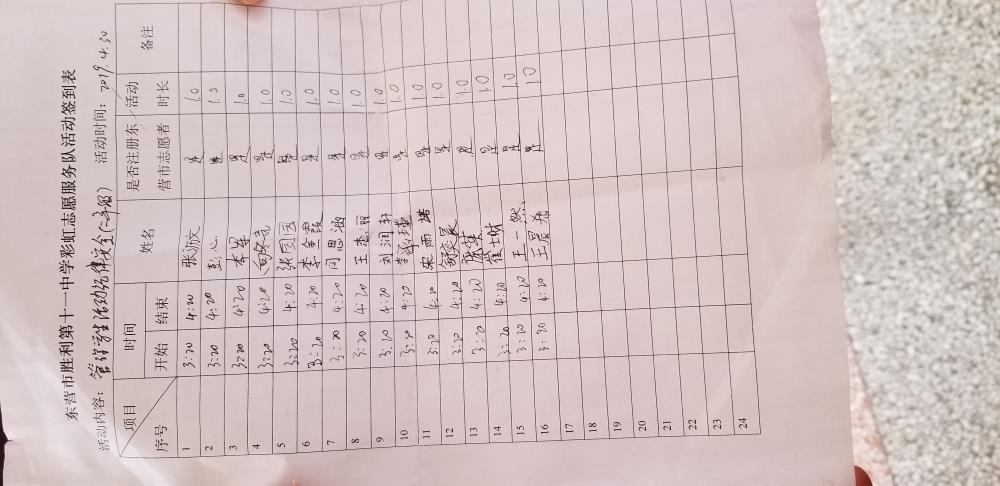 东营市胜利第十一中学彩虹志愿服务队活动签到表
活动内容：管理学生活动纪律安全 活动时间：2019.4.30
项目 时间 姓名 是否注册东营市志愿者 活动时长 备注
序号 开始 结束
1 3:20 4:20 张 文 是 1.0
2 3:20 4:20 彭心 是 1.0
3 3:20 4:20 是 1.0
4 3:20 4:20 是 1.0
5 3:20 4:20 张圆园 是 1.0
6 3:20 4:20 李金霞 是 1.0
7 3:20 4:20 闫思涵 是 1.0
8 3:20 4:20 王 是 1.0
9 3:20 4:20 刘润轩 是 1.0
10 3:20 4:20 李 是 1.0
11 3:20 4:20 宋雨 是 1.0
12 3:20 4:20 是 1.0
13 3:20 4:20 是 1.0
14 3:20 4:20 崔 是 1.0
15 3:20 4:20 王一然 是 1.0
16 3:20 4:20 王 是 1.0
17
18
19
20
21
22
23
24